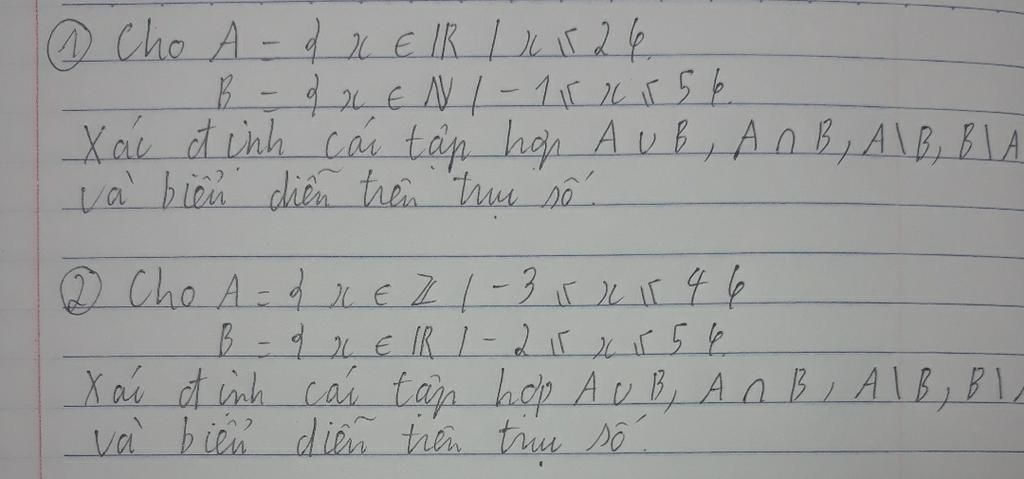 ① Cho A = { x ∈ ℝ | x ≤ 2 }
B = { x ∈ ℕ | -1 ≤ x ≤ 5 }
Xác định các tập hợp A ∪ B, A ∩ B, A \ B, B \ A
và biểu diễn trên trục số.
② Cho A = { x ∈ ℤ | -3 ≤ x ≤ 4 }
B = { x ∈ ℝ | -2 ≤ x ≤ 5 }
Xác định các tập hợp A ∪ B, A ∩ B, A \ B, B \
và biểu diễn trên trục số.